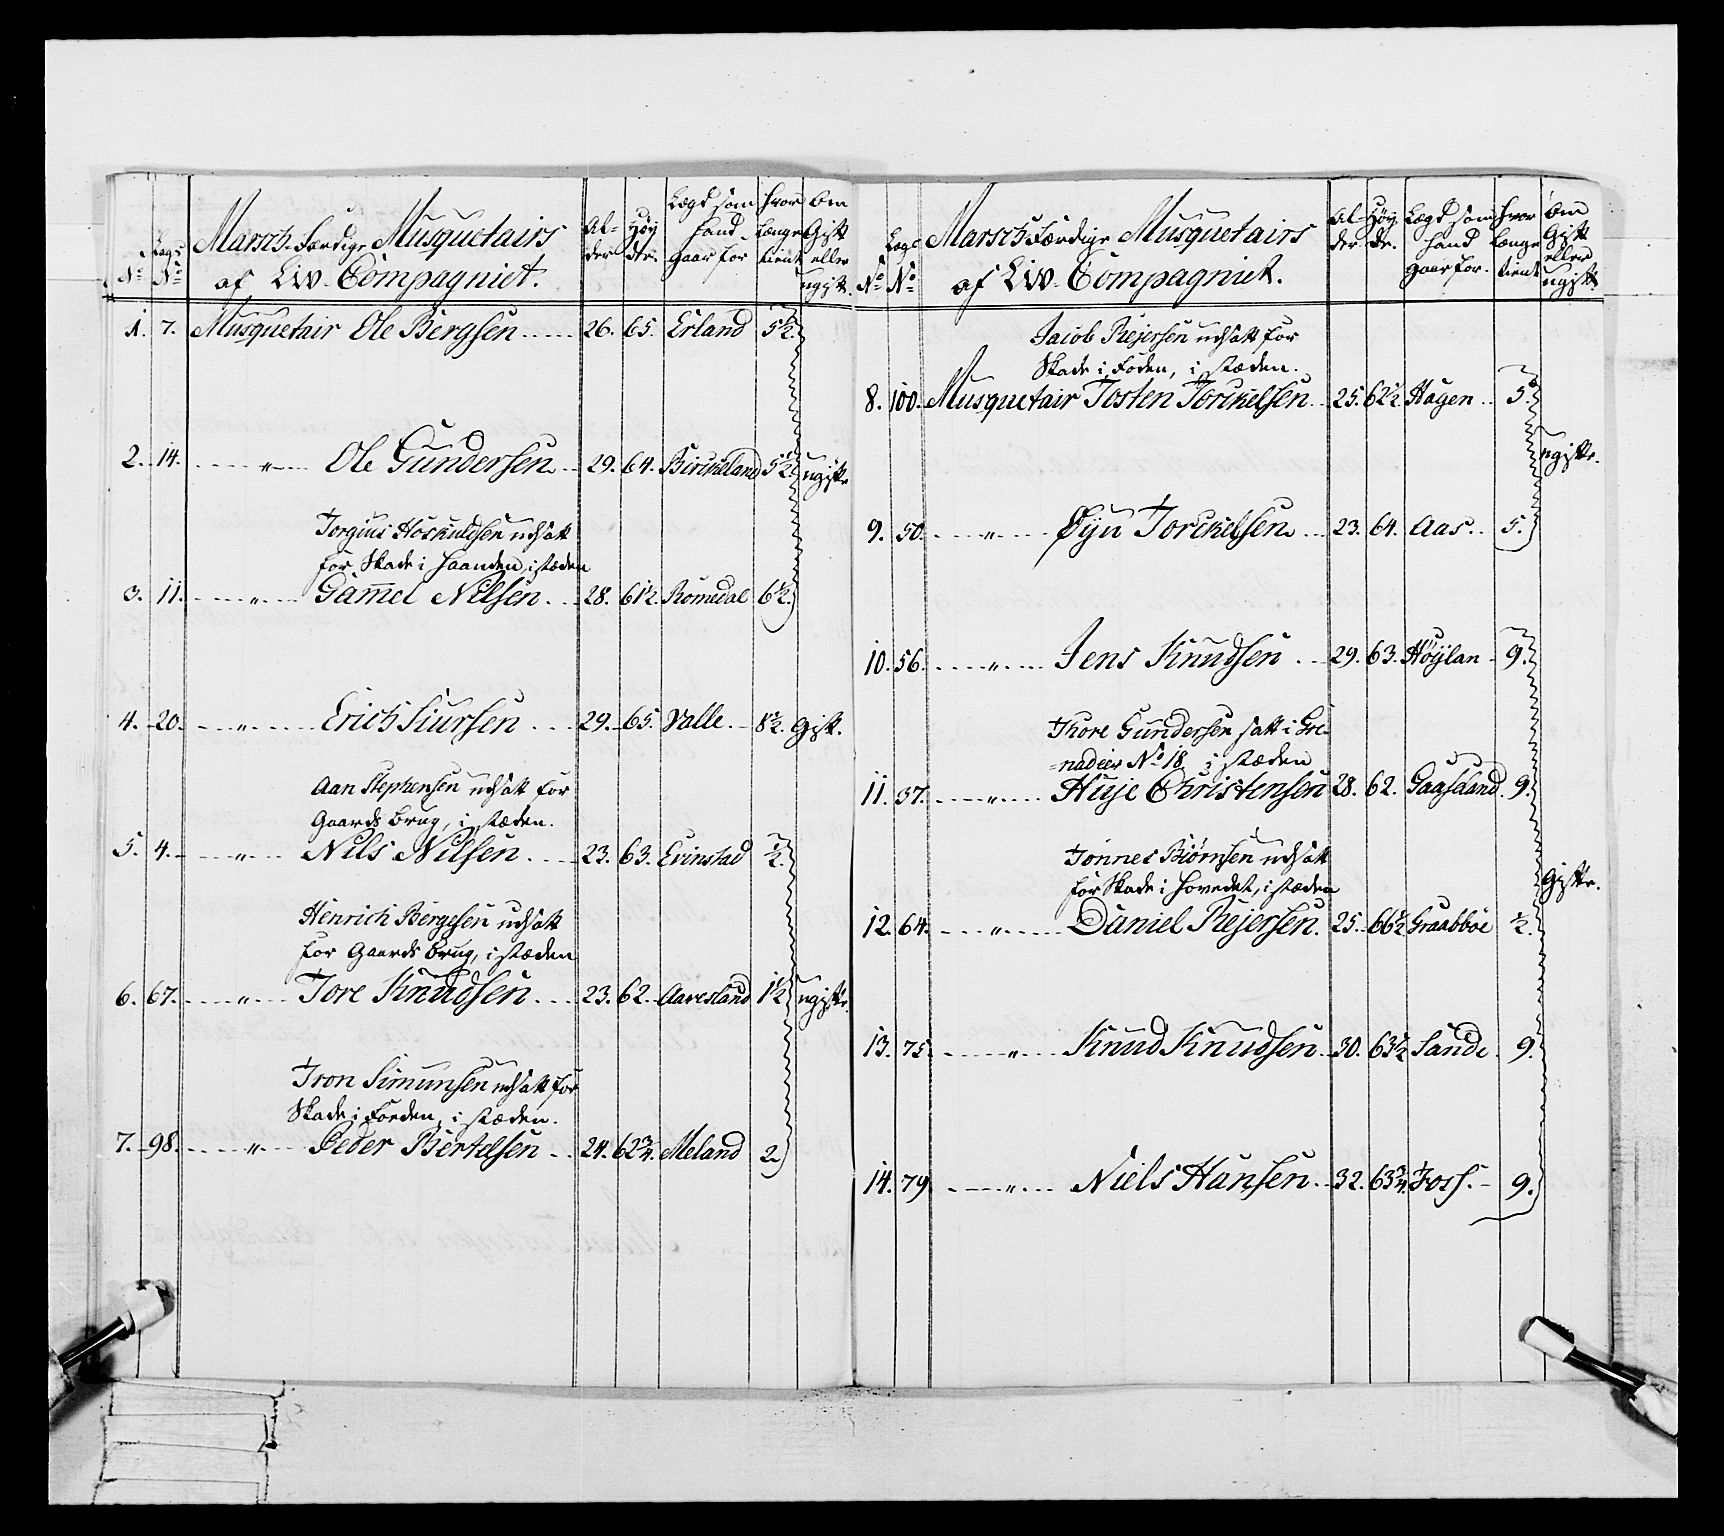 No Lægs No Marsch-Færdige Musquetairs af Liv-Compagniet. Al-der Høy-de. Lægd som hand gaar for hvor længe tient Om Gift eller ugift.
1. 7. Musquetair Ole Bergsen 26. 65. Erland 5½.
2. 14. " Ole Gundersen 29. 64. Birckeland 5½. ugifte
Torgius Hoskuldsen udsatt
for Skade i Haanden, i stæden
3. 11. " Gamel Nilsen 28. 61½. Romedal 6½.
4. 20. " Erich Siursen 29. 65. Valle. 8½. Gift.
Aan Stephensen udsatt for
Gaards brug, i stæden.
5. 4. " Nils Nilsen 23. 63. Evinstad ½.
Henrich Bergesen udsatt
for Gaards brug, i stæden
6. 67. " Tore Knudsen 23. 62. Aavesland 1½ ugifte.
Tron Simunsen udsatt for
Skade i Foeden, i stæden.
7. 98. " Peder Bertelsen 24. 62¾. Meland 2.
No Lægs No Marsch Færdige Musquetairs af Liv-Compagniet. Al-der Høy-de. Lægd som hand gaar for. hvor længe tient Om Gift eller ugift
Jacob Rejersen udsatt for
Skade i Foden, i stæden.
8. 100. Musquetair Tosten Torckelsen 25. 62½ Hagen 5.
ugifte.
9. 50. " Øyu Torckelsen 23. 64. Aas. 5.
10. 56. " Jens Knudsen 29. 63. Høylan 9.
Thore Gundersen satt i Gre-
nadeer No 18, i stæden
11. 37. " Huje Christensen 28. 62. Gaaseland. 9.
Tønnes Biørnsen udsatt
for Skade i Hovedet, i stæden
Gifte.
12. 64. " Daniel Rejersen. 25. 66½ Graabboe ½.
13. 75. " Knud Knudsen 30. 63½ Sande 9.
14. 79 " Niels Hansen 32. 63¾. Foss. 9.